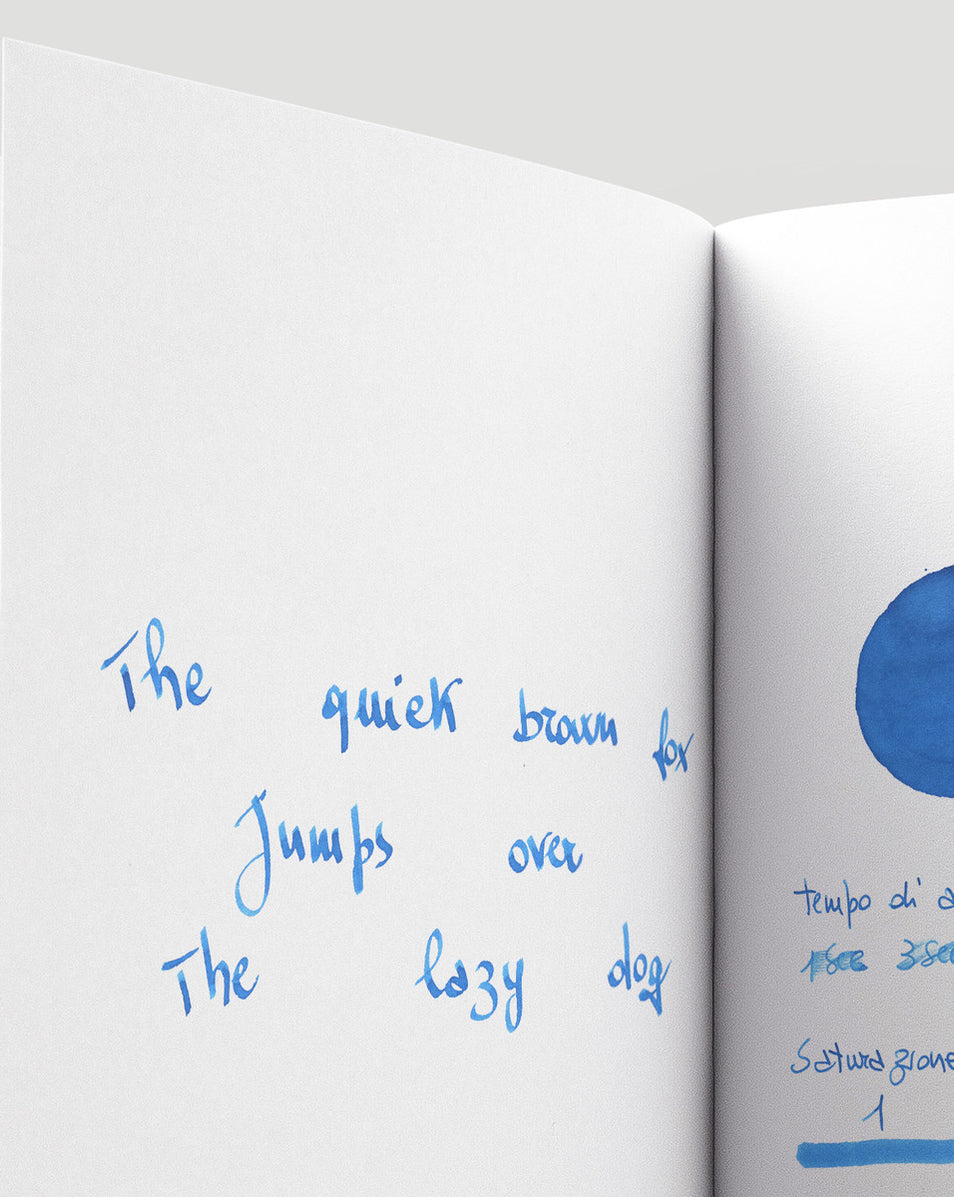 The quick brown fox
Jumps over
The lazy dog
tempo di a
1 sec 3 sec
Saturazione
1